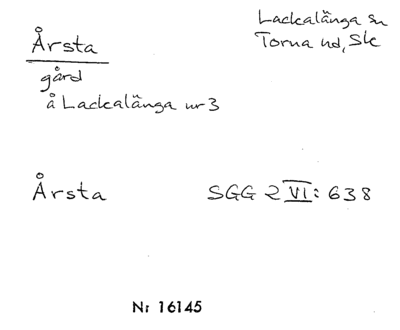 Årsta
Lackalänga sn
Torna hd, Sk
gård
å Lackalänga nr 3
Årsta SGG 2 VI: 638
Nr 16145